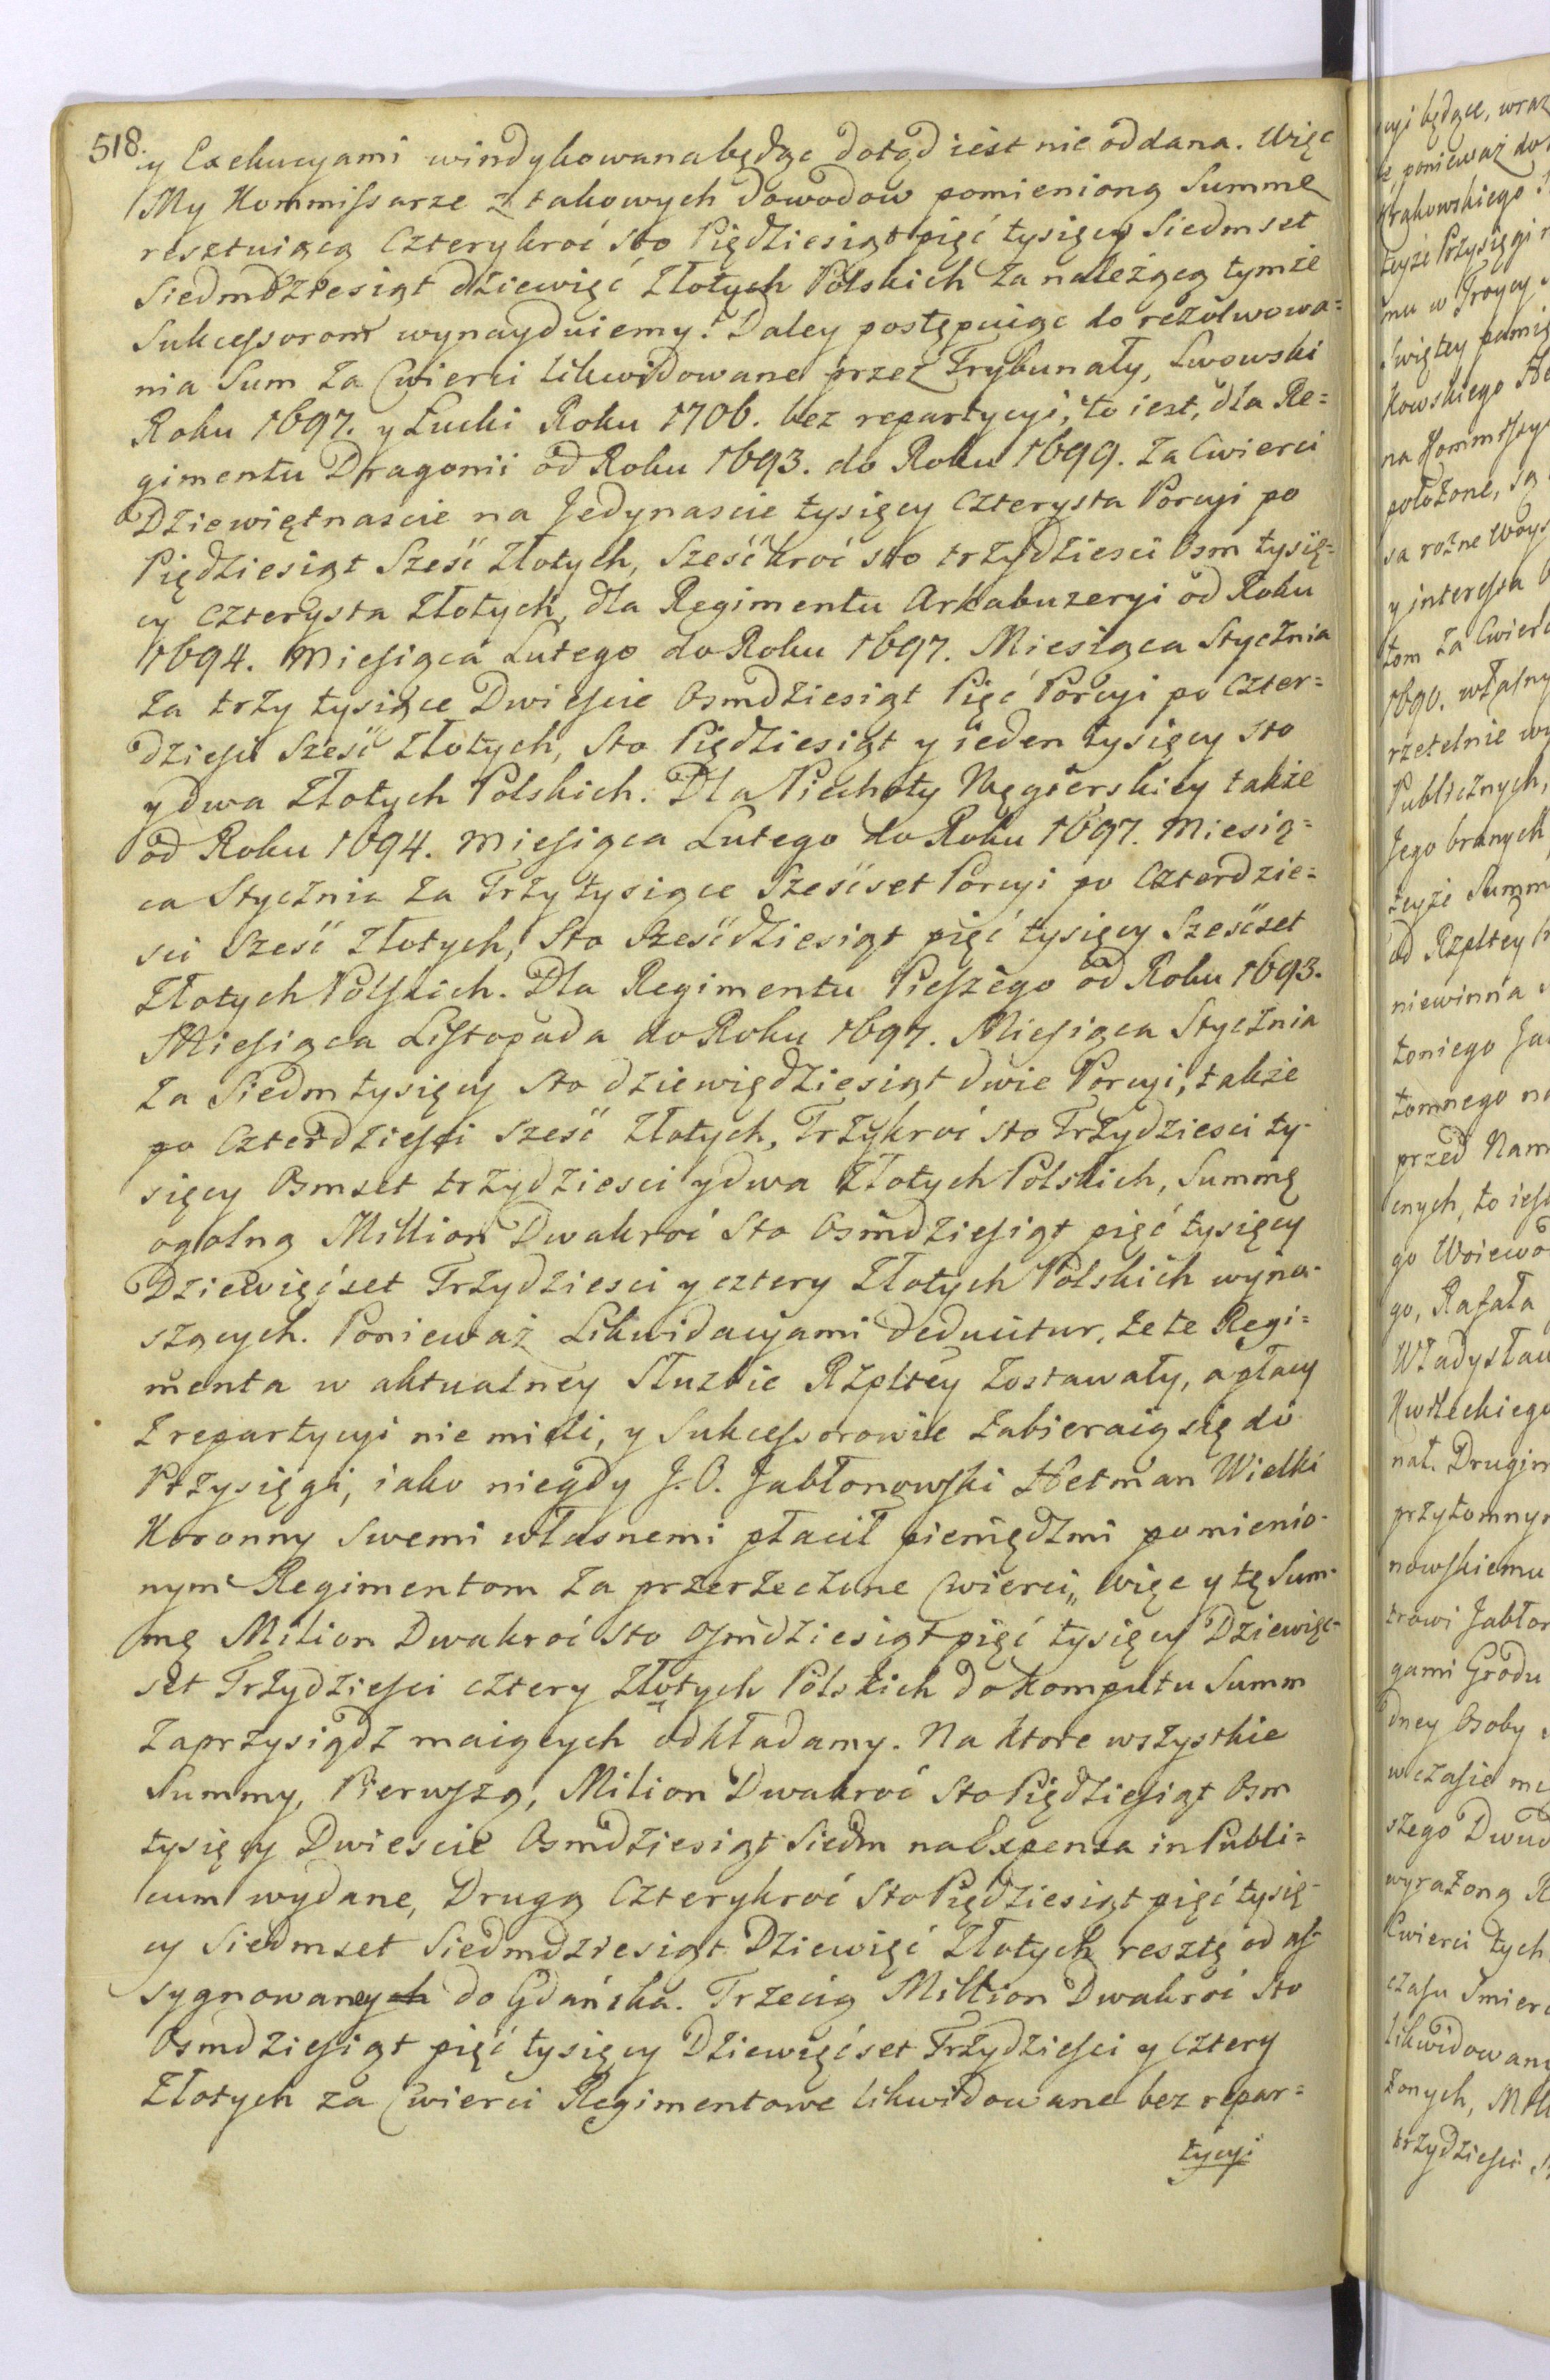 518.
y Exekucyami windykowana będąc dotąd iest nie oddana. Więc
My Kommissarze z takowych dowodow pomienioną Summę
resztuiącą Czterykroć Sto Pięćdziesiąt pięć tysięcy Siedmset
Siedmdziesiąt dziewięć Złotych Polskich za należącą tymże
Sukcessorom wynayduiemy. Daley postępuiąc do rezolwowa=
nia Sum za Cwierci likwidowane przez Trybunały, Lwowski
Roku 1697. y Łucki Roku 1706. bez repartycyi, to iest, dla Re=
gimentu Dragonii od Roku 1693. do Roku 1699. za Cwierci
Dziewiętnascie na Jedynascie tysięcy Czterysta Porcyi po
Pięździesiąt Sześć Złotych, Sześćkroć sto trzydziesci Osm tysię=
cy Czterysta Złotych, dla Regimentu Arkabuzeryi od Roku
1694. Miesiąca Lutego do Roku 1697. Miesiąca Stycznia
za trzy tysiące Dwiescie Osmdziesiąt Pięć Porcyi po Czter=
dziesci Sześć Złotych, Sto Pięździesiąt y ieden tysięcy sto
y dwa Złotych Polskich. Dla Piechoty Węgierskiey także
od Roku 1694. Miesiąca Lutego do Roku 1697. Miesią=
ca Stycznia za Trzy tysiące Sześćset Porcyi po Czterdzie=
sci Sześć Złotych, Sto Sześćdziesiąt pięć tysięcy Sześćset
Złotych Polskich. Dla Regimentu Pieszego od Roku 1693.
Miesiąca Listopada do Roku 1697. Miesiąca Stycznia
za Siedm tysięcy Sto dziewiędziesiąt dwie Porcyi, także
po Czterdziesci Sześć Złotych, Trzykroć sto Trzydziesci ty-
sięcy Osmset trzydziesci y dwa Złotych Polskich, Summę
ogolną Million Dwakroć Sto Osmdziesiąt pięć tysięcy
Dziewięćset Trzydziesci y cztery Złotych Polskich wyno-
szących. Ponieważ Likwidacyami deducitur, że te Regi=
menta w aktualney Służbie Rzpltey zostawały, a płacy
z repartycyi nie mieli, y Sukcessorowie zabieraią się do
Przysięgi, iako niegdy J. O. Jabłonowski Hetman Wielki
Koronny Swemi własnemi płacił pieniędzmi pomienio-
nym Regimentom za przerzeczone Cwierci, więc y tę Sum-
mę Milion Dwakroć sto osmdziesiąt pięć tysięcy Dziewięć-
set Trzydziesci cztery Złotych Polskich do komputu Summ
Zaprzysiądz maiących odkładamy. Na ktore wszystkie
Summy, Pierwszą, Milion Dwakroć Sto Pięździesiąt Osm
tysięcy Dwiescie Osmdziesiąt Siedm na Expensa in Publi=
cum wydane, Drugą Czterykroć Sto Pięździesiąt pięć tysię-
cy Siedmset Siedmdziesiąt Dziewięć Złotych resztę od as-
sygnowaney do Gdańska. Trzecią Million Dwakroć Sto
Osmdziesiąt pięć tysięcy Dziewięćset Trzydziesci y Cztery
Złotych za Cwierci Regimentowe likwidowane bez repar=
tycyi
cyi będące, wraz
ponieważ do
Krakowskiego
teyże Przysięgi
mu w Troycy
Swiętey pamię
kowskiego He
na Kommissy
położone, są
sa rożne Woys
y interessa
tom za Cwierc
1690. własny
rzetelnie wy
Publicznych,
Jego branych
teyże Summ
od Rzpltey
niewinna
toniego Ja
tomnego na
przed Nam
cnych, to iest
go Woiewo
go, Rafała
Władysław
Kwileckiego
nał. Drugim
przytomnym
nowskiemu
trowi Jabłon
gami Grodu
dney Osoby
w czasie
szego Dwu
wyrażoną
Cwierci tych
czasu Smierc
likwidowan
żonych,
trzydziesci